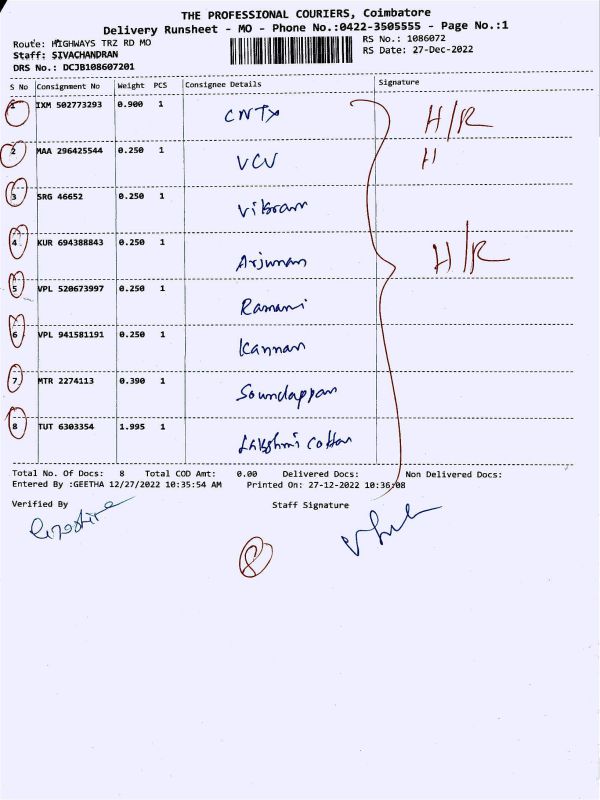 THE PROFESSIONAL COURIERS, Coimbatore
Delivery Runsheet - MO - Phone No.:0422-3505555 - Page No.:1
Route: HIGHWAYS TRZ RD MO
RS No.: 1086072
Staff: SIVACHANDRAN
RS Date: 27-Dec-2022
DRS No.: DCJB108607201
S No Consignment No Weight PCS Consignee Details Signature
1 IXM 502773293 0.900 1 CNTX H/R
2 MAA 296425544 0.250 1 VCV H
3 SRG 46652 0.250 1 Vikram
4 KUR 694388843 0.250 1 Arjunan H/R
5 VPL 520673997 0.250 1 Ramani
6 VPL 941581191 0.250 1 Kannan
7 MTR 2274113 0.390 1 Soundappan
8 TUT 6303354 1.995 1 Lakshmi Cotton
Total No. Of Docs: 8 Total COD Amt: 0.00 Delivered Docs: Non Delivered Docs:
Entered By :GEETHA 12/27/2022 10:35:54 AM Printed On: 27-12-2022 10:36:08
Verified By Staff Signature
8